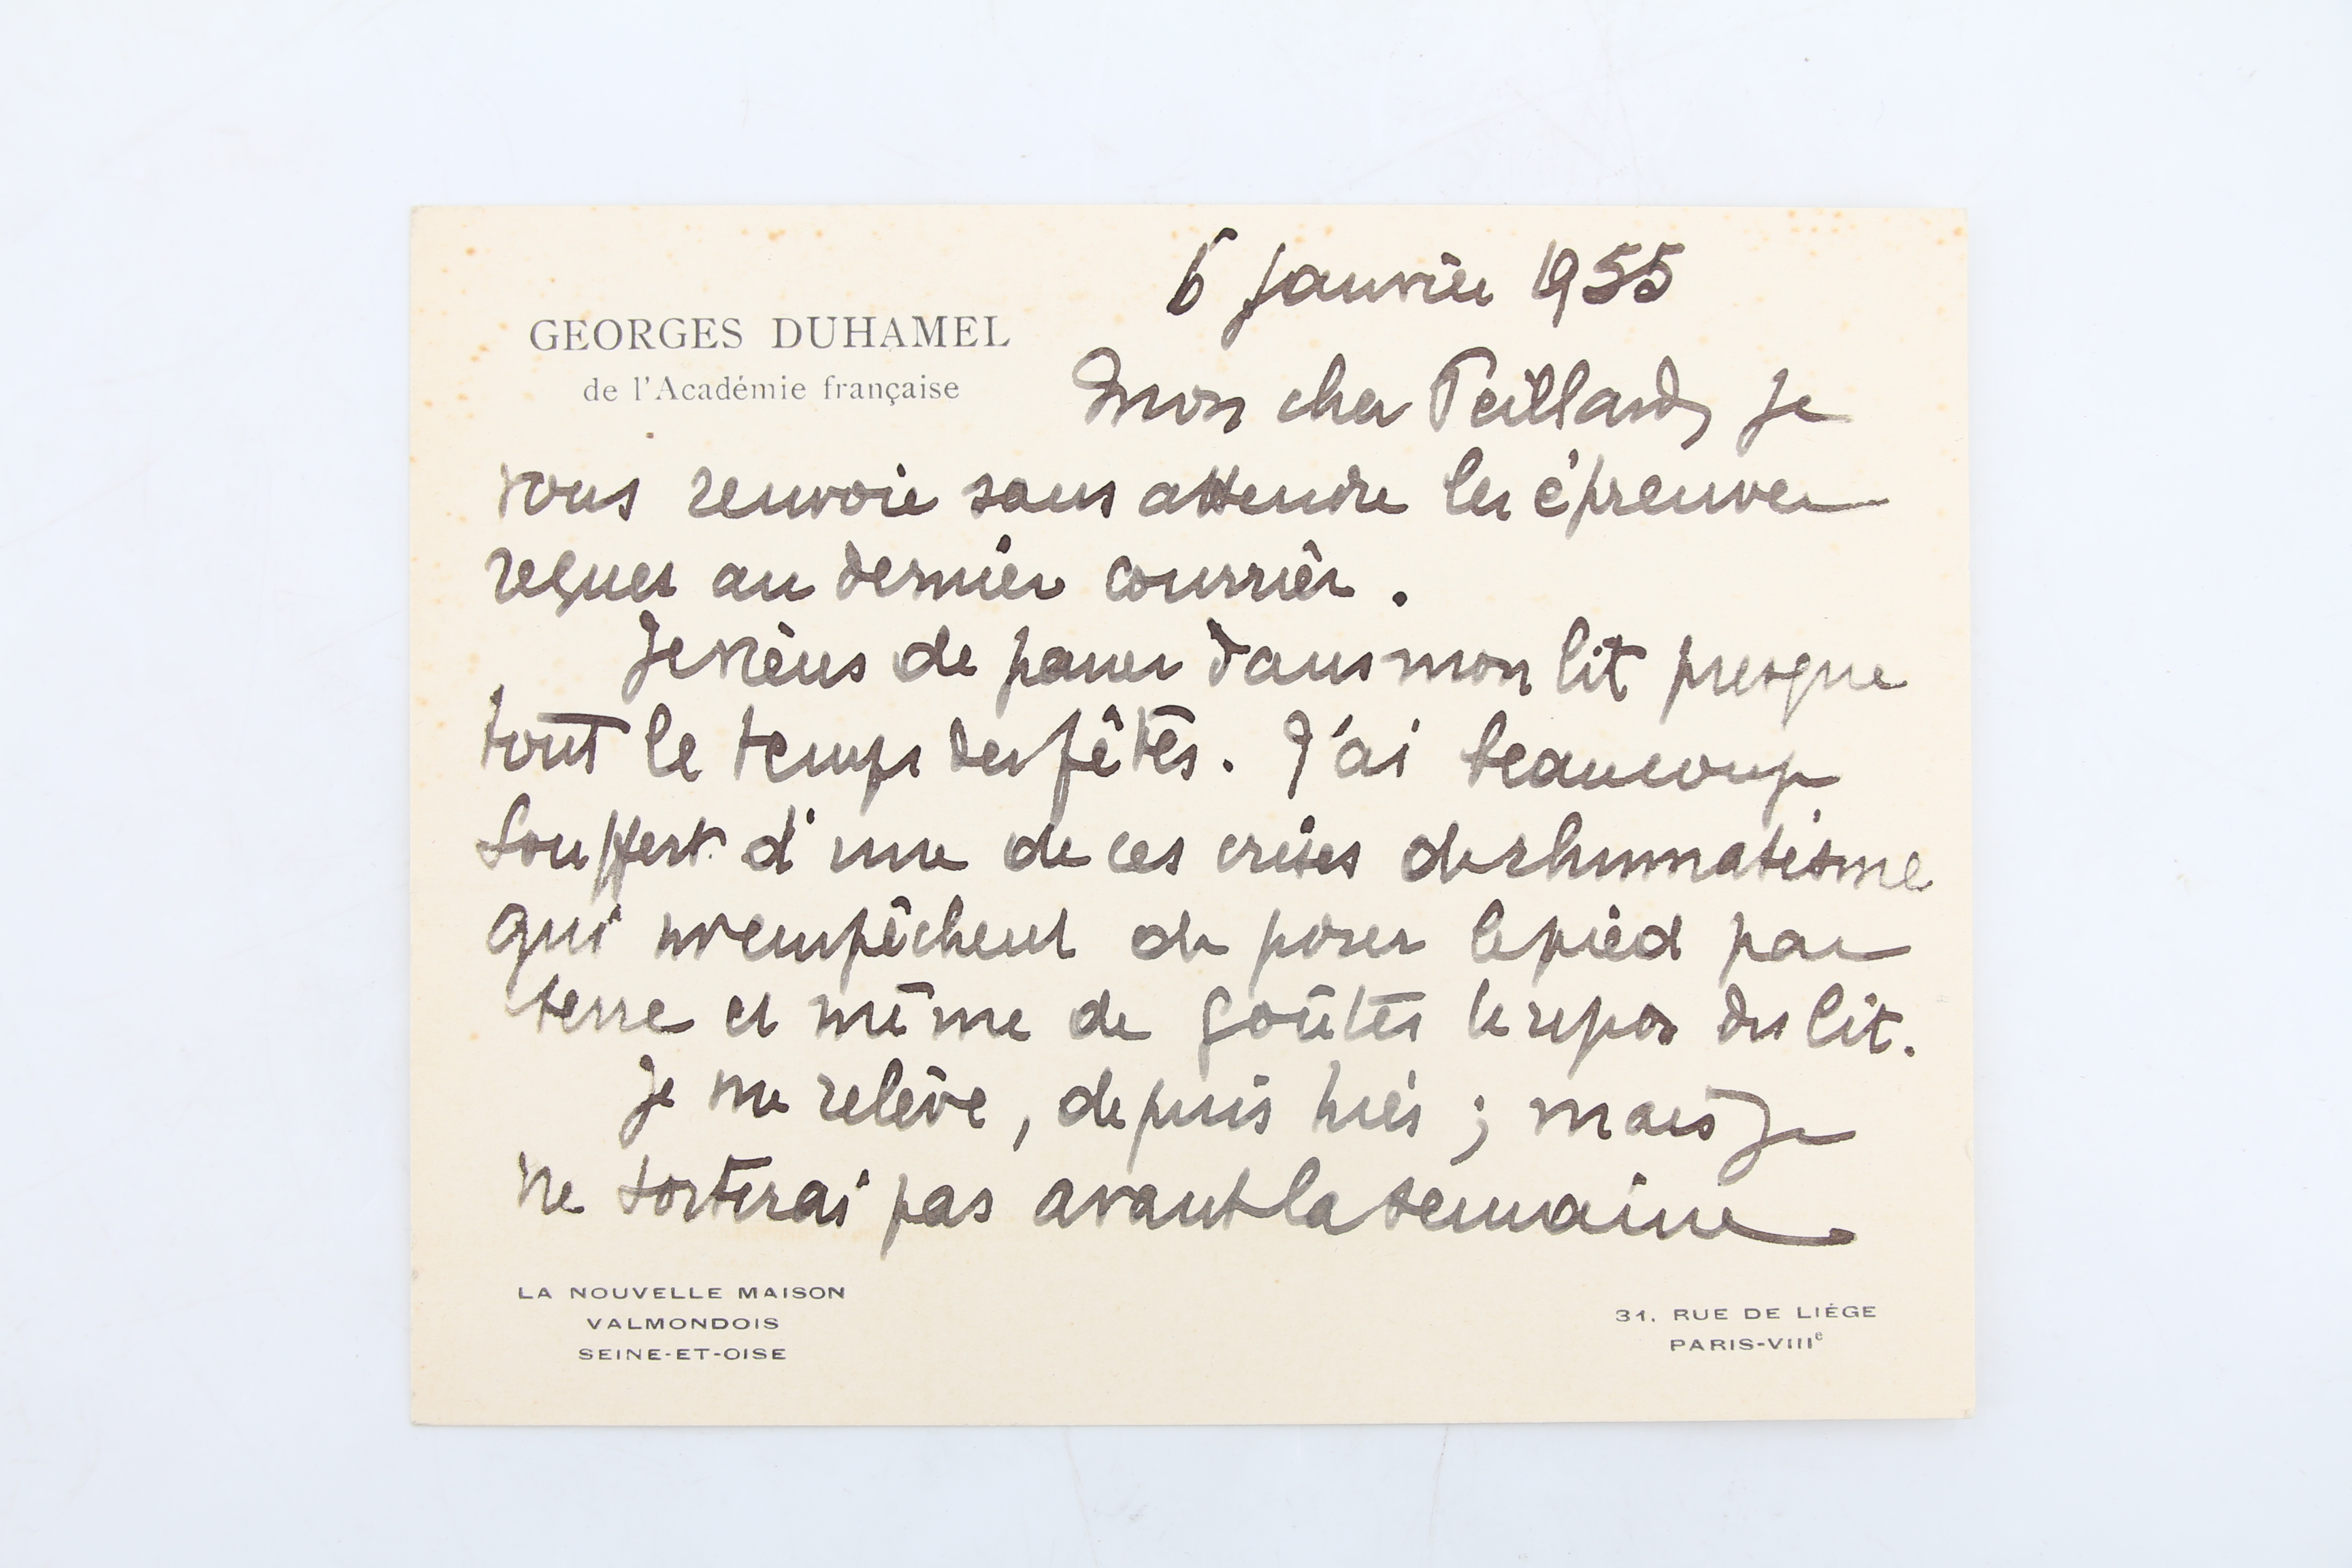 6 janvier 1955
GEORGES DUHAMEL
de l'Académie française
Mon cher Peillard, je
vous renvoie sans attendre les épreuves
reçues au dernier courrier.
Je viens de passer dans mon lit presque
tout le temps des fêtes. J'ai beaucoup
souffert d'une de ces crises de rhumatisme
qui m'empêchent de poser le pied par
terre et même de goûter le repos du lit.
Je me relève, depuis hier ; mais je
ne sortirai pas avant la semaine
LA NOUVELLE MAISON
VALMONDOIS
SEINE-ET-OISE
31, RUE DE LIÉGE
PARIS-VIIIe